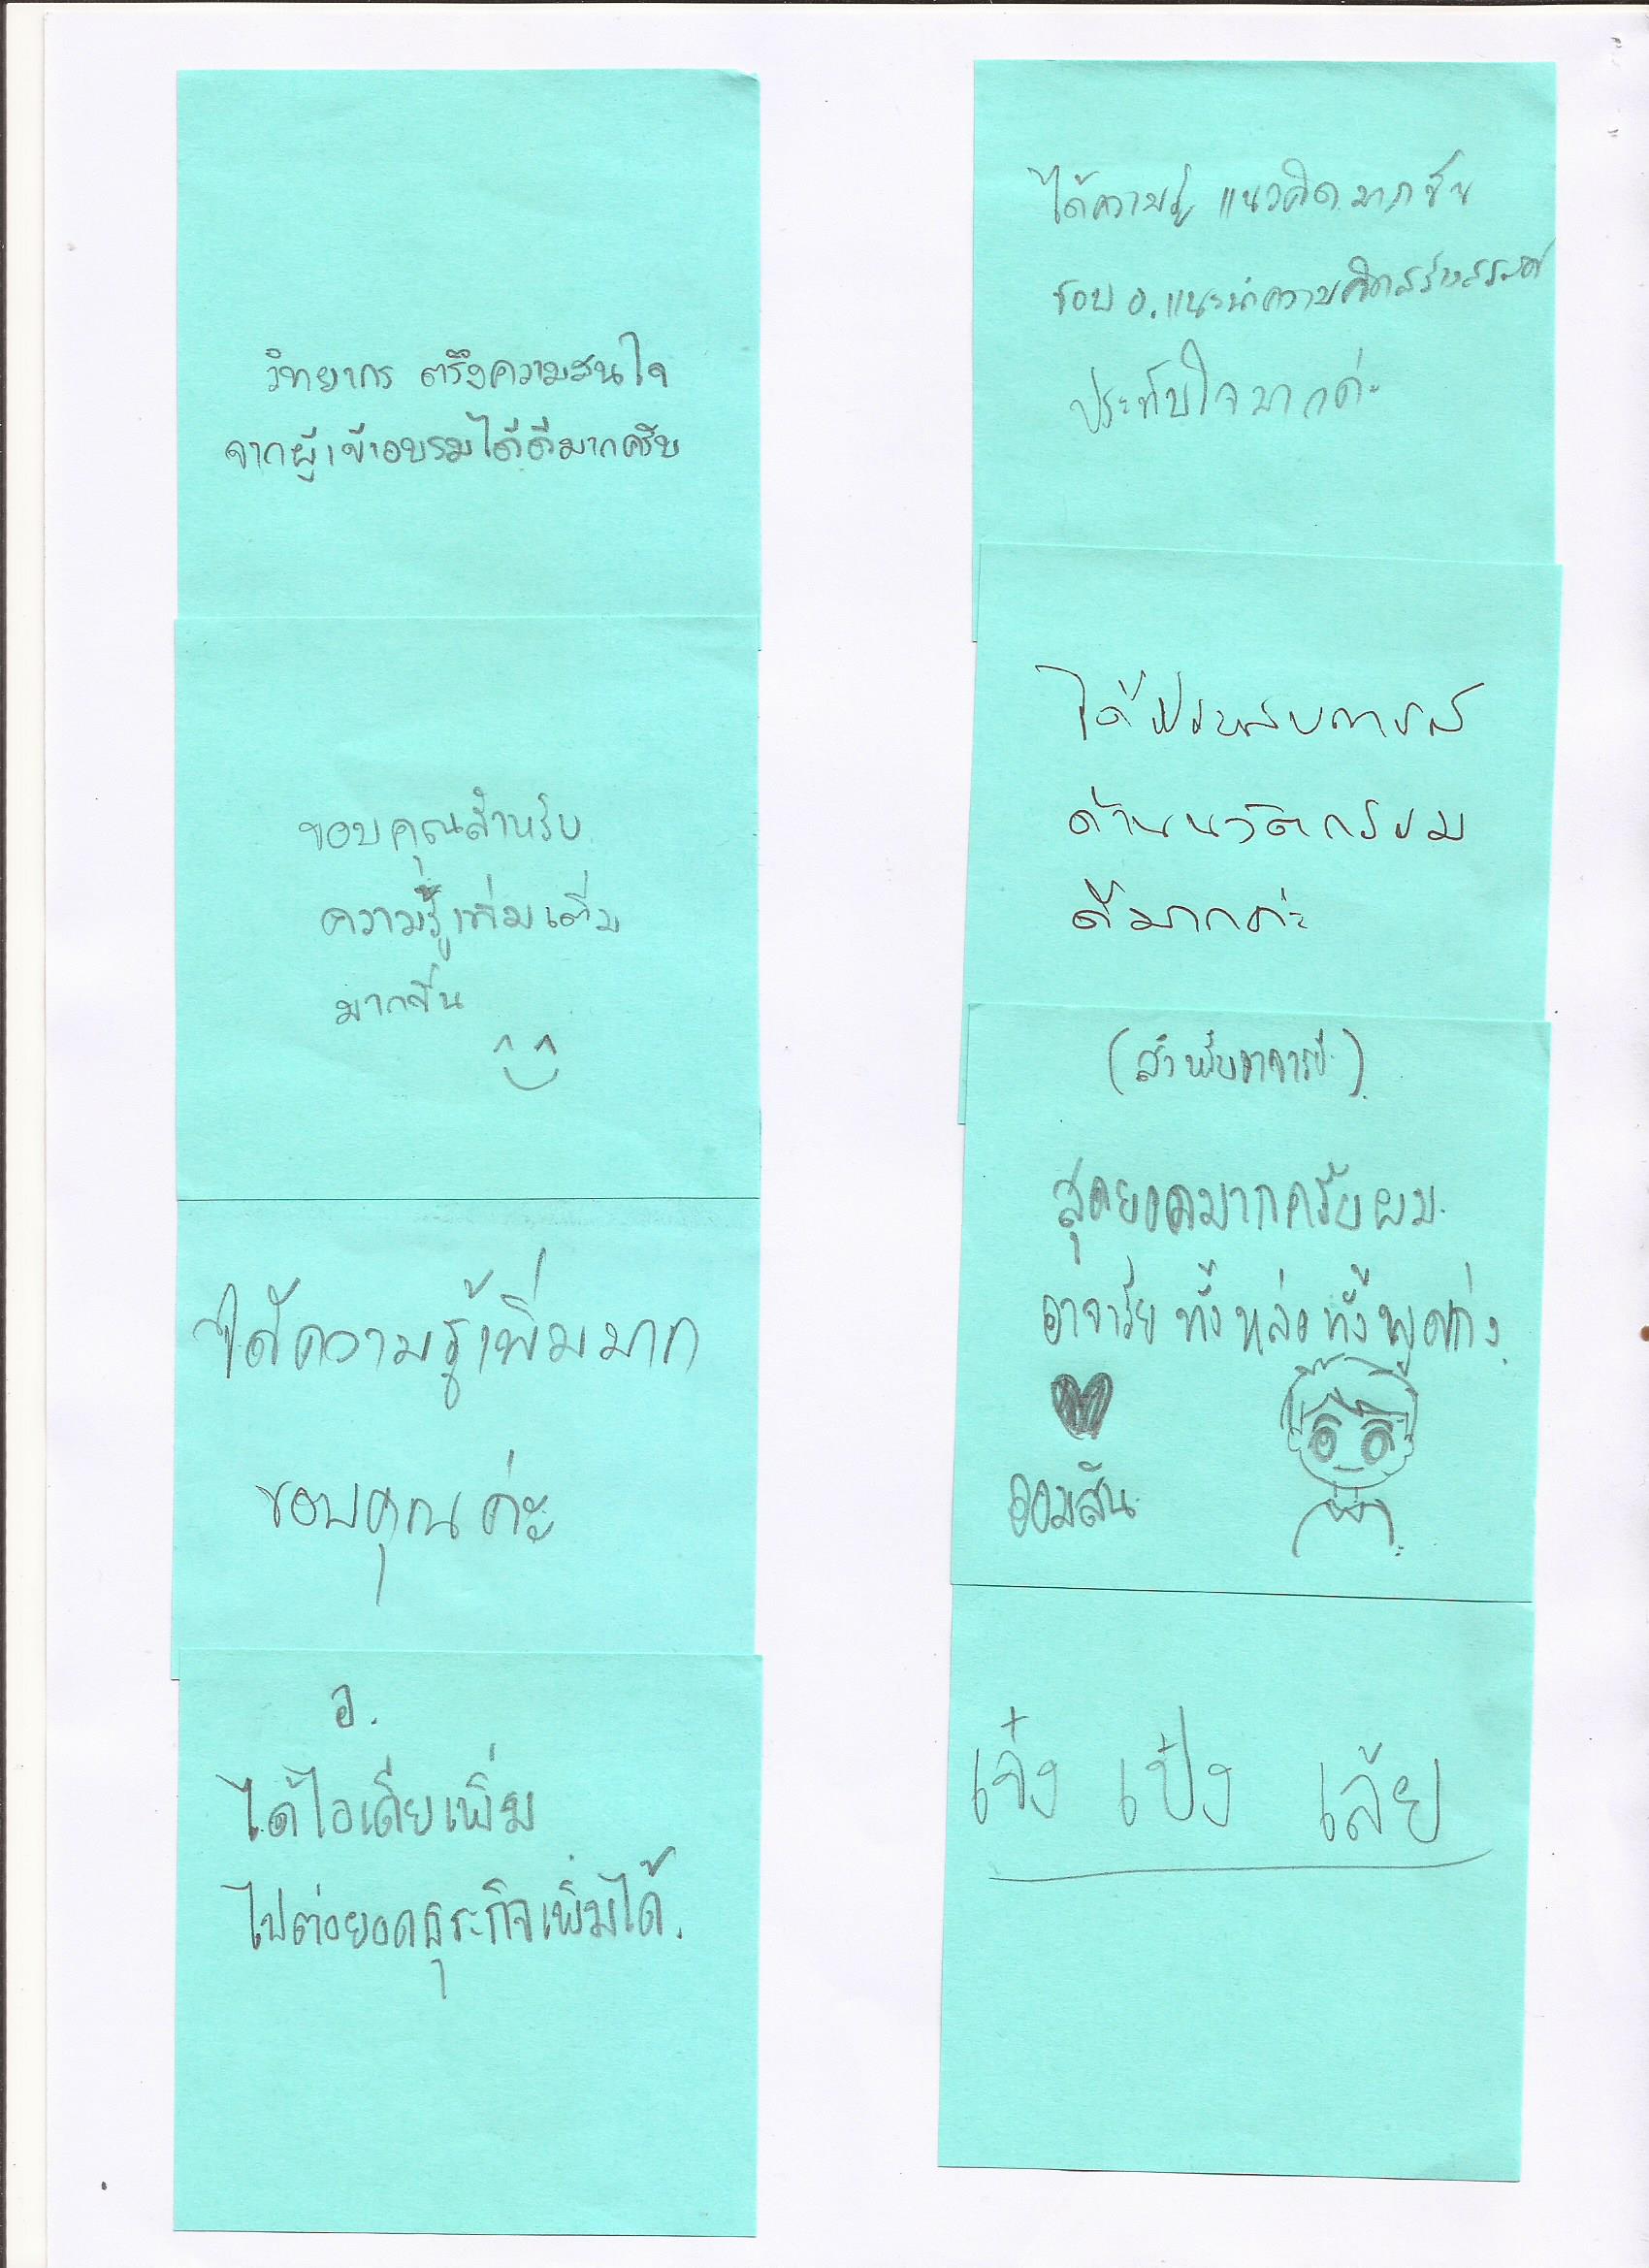 วิทยากร ตรึงความสนใจ
จากผู้เข้าอบรมได้ดีมากครับ
ขอบคุณสำหรับ
ความรู้เพิ่มเติม
มากขึ้น
ได้ความรู้เพิ่มมาก
ขอบคุณค่ะ
อ.
ได้ไอเดียเพิ่ม
ไปต่อยอดธุระกิจเพิ่มได้.
ได้ความรู้ แนวคิดมากขึ้น
ชอบ อ.แนะนำความคิดสร้างสรรค์
ประทับใจมากค่ะ
ได้ประสบการณ์
ด้านนวัตกรรม
ดีมากค่ะ
(สำหรับอาจารย์)
สุดยอดมากครับผม
อาจารย์ทั้งหล่อทั้งพูดเก่ง
ออมสิน
เจ๋ง เป้ง เล้ย